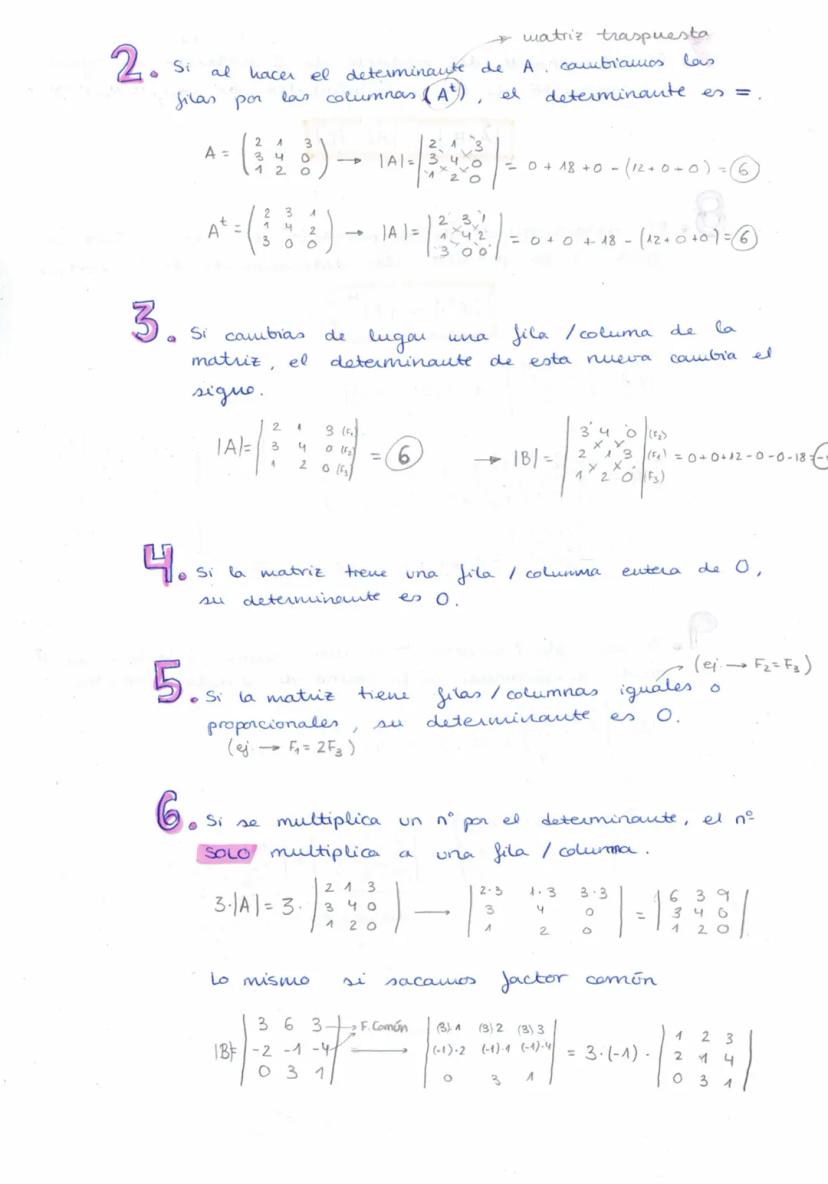 → matriz traspuesta
2. Si al hacer el determinante de A. cambiamos las
filas por las columnas (Aᵗ), el determinante es =.
A = ( 2 1 3 / 3 4 0 / 1 2 0 ) → |A| = | 2 1 3 / 3 4 0 / 1 2 0 | = 0 + 18 + 0 - (12 + 0 + 0) = 6
Aᵗ = ( 2 3 1 / 1 4 2 / 3 0 0 ) → |A| = | 2 3 1 / 1 4 2 / 3 0 0 | = 0 + 0 + 18 - (12 + 0 + 0) = 6
3. Si cambias de lugar una fila / columa de la
matriz, el determinante de esta nueva cambia el
signo.
|A| = | 2 1 3 (F₁) / 3 4 0 (F₂) / 1 2 0 (F₃) | = 6 → |B| = | 3 4 0 (F₂) / 2 1 3 (F₁) / 1 2 0 (F₃) | = 0 + 0 + 12 - 0 - 0 - 18 =
4. Si la matriz tiene una fila / columna entera de 0,
su determinante es 0.
(ej → F₂ = F₃)
5. Si la matriz tiene filas / columnas iguales o
proporcionales, su determinante es 0.
(ej → F₁ = 2F₃)
6. Si se multiplica un nº por el determinante, el nº
SOLO multiplica a una fila / columna.
3·|A| = 3 · | 2 1 3 / 3 4 0 / 1 2 0 | — | 2·3 1·3 3·3 / 3 4 0 / 1 2 0 | = | 6 3 9 / 3 4 0 / 1 2 0 |
Lo mismo si sacamos factor común
|B| = | 3 6 3 / -2 -1 -4 / 0 3 1 | → F. Común → | (3)·1 (3)2 (3)3 / (-1)·2 (-1)·1 (-1)·4 / 0 3 1 | = 3·(-1) · | 1 2 3 / 2 1 4 / 0 3 1 |